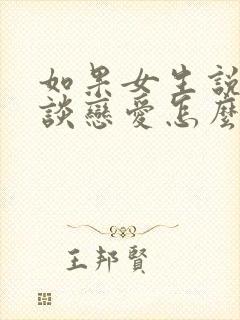 如果女生說
談戀愛怎麼
王邦賢